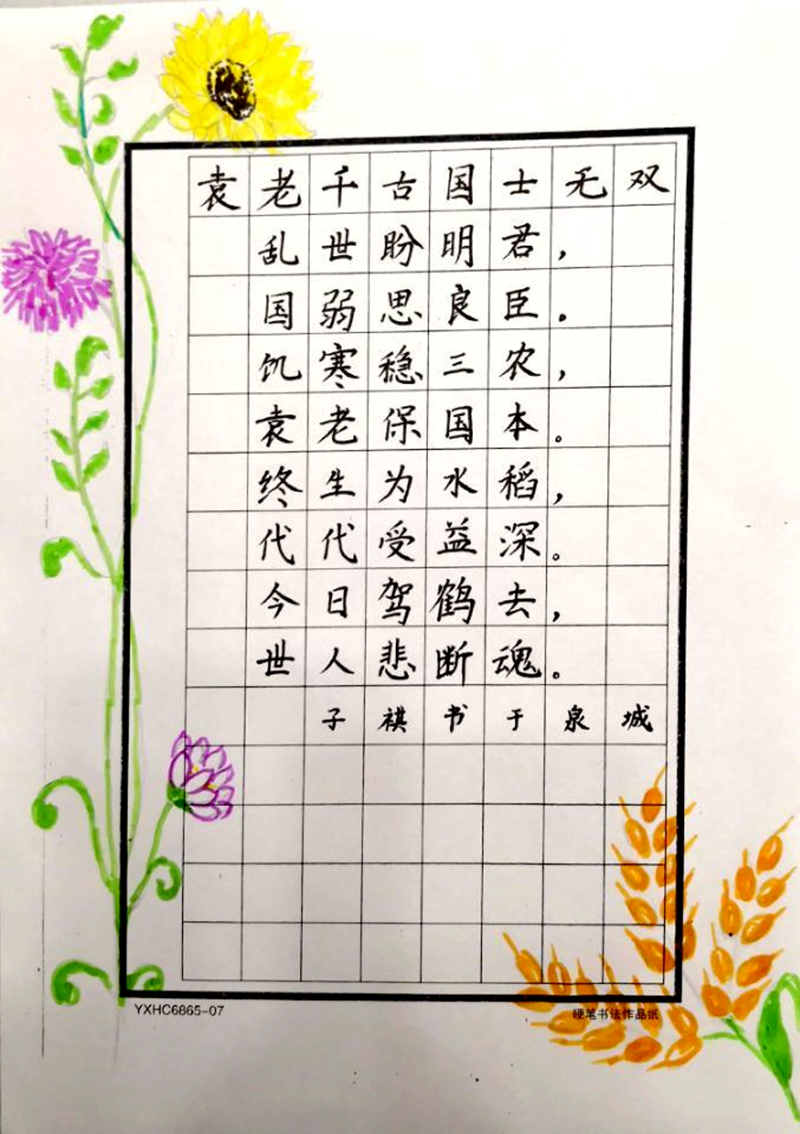 袁老千古国士无双
乱世盼明君，
国弱思良臣．
饥寒稳三农，
袁老保国本。
终生为水稻，
代代受益深。
今日驾鹤去，
世人悲断魂。
子祺书于泉城
YXHC6865-07
硬笔书法作品纸